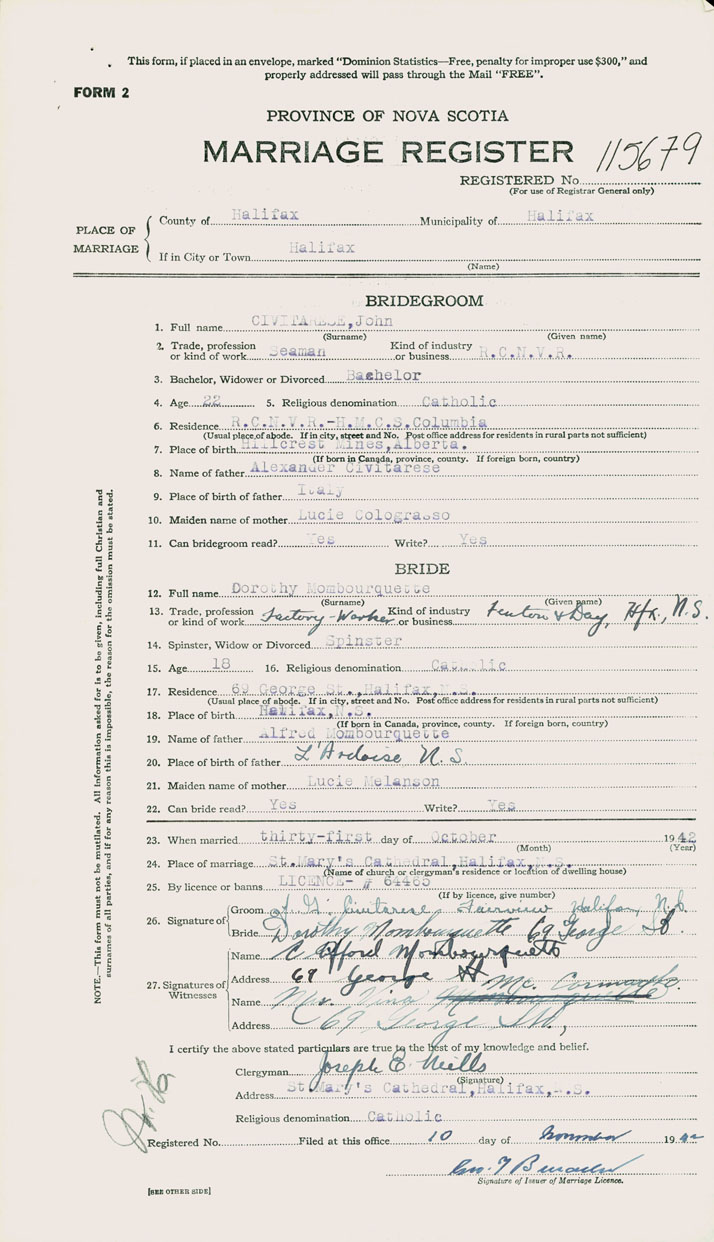 This form, if placed in an envelope, marked "Dominion Statistics—Free, penalty for improper use $300," and
properly addressed will pass through the Mail "FREE".
FORM 2
PROVINCE OF NOVA SCOTIA
MARRIAGE REGISTER 115679
REGISTERED No.
(For use of Registrar General only)
PLACE OF MARRIAGE
County of Halifax Municipality of Halifax
If in City or Town Halifax
(Name)
BRIDEGROOM
1. Full name CIVITARESE, John
(Surname) (Given name)
2. Trade, profession or kind of work Seaman Kind of industry or business R.C.N.V.R.
3. Bachelor, Widower or Divorced Bachelor
4. Age 22 5. Religious denomination Catholic
6. Residence R.C.N.V.R.-H.M.C.S.Columbia
(Usual place of abode. If in city, street and No. Post office address for residents in rural parts not sufficient)
7. Place of birth Hillcrest Mines, Alberta.
(If born in Canada, province, county. If foreign born, country)
8. Name of father Alexander Civitarese
9. Place of birth of father Italy
10. Maiden name of mother Lucie Colograsso
11. Can bridegroom read? Yes Write? Yes
BRIDE
12. Full name Dorothy Mombourquette
(Surname) (Given name)
13. Trade, profession or kind of work Factory-Worker Kind of industry or business Fenton & Day, Hfx., N.S.
14. Spinster, Widow or Divorced Spinster
15. Age 18 16. Religious denomination Catholic
17. Residence 69 George St., Halifax, N.S.
(Usual place of abode. If in city, street and No. Post office address for residents in rural parts not sufficient)
18. Place of birth Halifax, N.S.
(If born in Canada, province, county. If foreign born, country)
19. Name of father Alfred Mombourquette
20. Place of birth of father L'Ardoise N.S.
21. Maiden name of mother Lucie Melanson
22. Can bride read? Yes Write? Yes
23. When married thirty-first day of October 1942
(Month) (Year)
24. Place of marriage St. Mary's Cathedral, Halifax, N.S.
(Name of church or clergyman's residence or location of dwelling house)
25. By licence or banns LICENCE- # 64465
(If by licence, give number)
26. Signature of
Groom Civitarese, Fairview Halifax, N.S.
Bride Dorothy Mombourquette 69 George St.
27. Signatures of Witnesses
Name Clifford Mombourquette
Address 69 George St
Name Mrs. Mc. Cormack
Address 69 George St.,
I certify the above stated particulars are true to the best of my knowledge and belief.
Clergyman Joseph E. Mills
(Signature)
Address St Mary's Cathedral, Halifax, N.S.
Religious denomination Catholic
Registered No. Filed at this office 10 day of November 1942
Geo. F
Signature of Issuer of Marriage Licence.
[SEE OTHER SIDE]
NOTE.—This form must not be mutilated. All information asked for is to be given, including full Christian and
surnames of all parties, and if for any reason this is impossible, the reason for the omission must be stated.